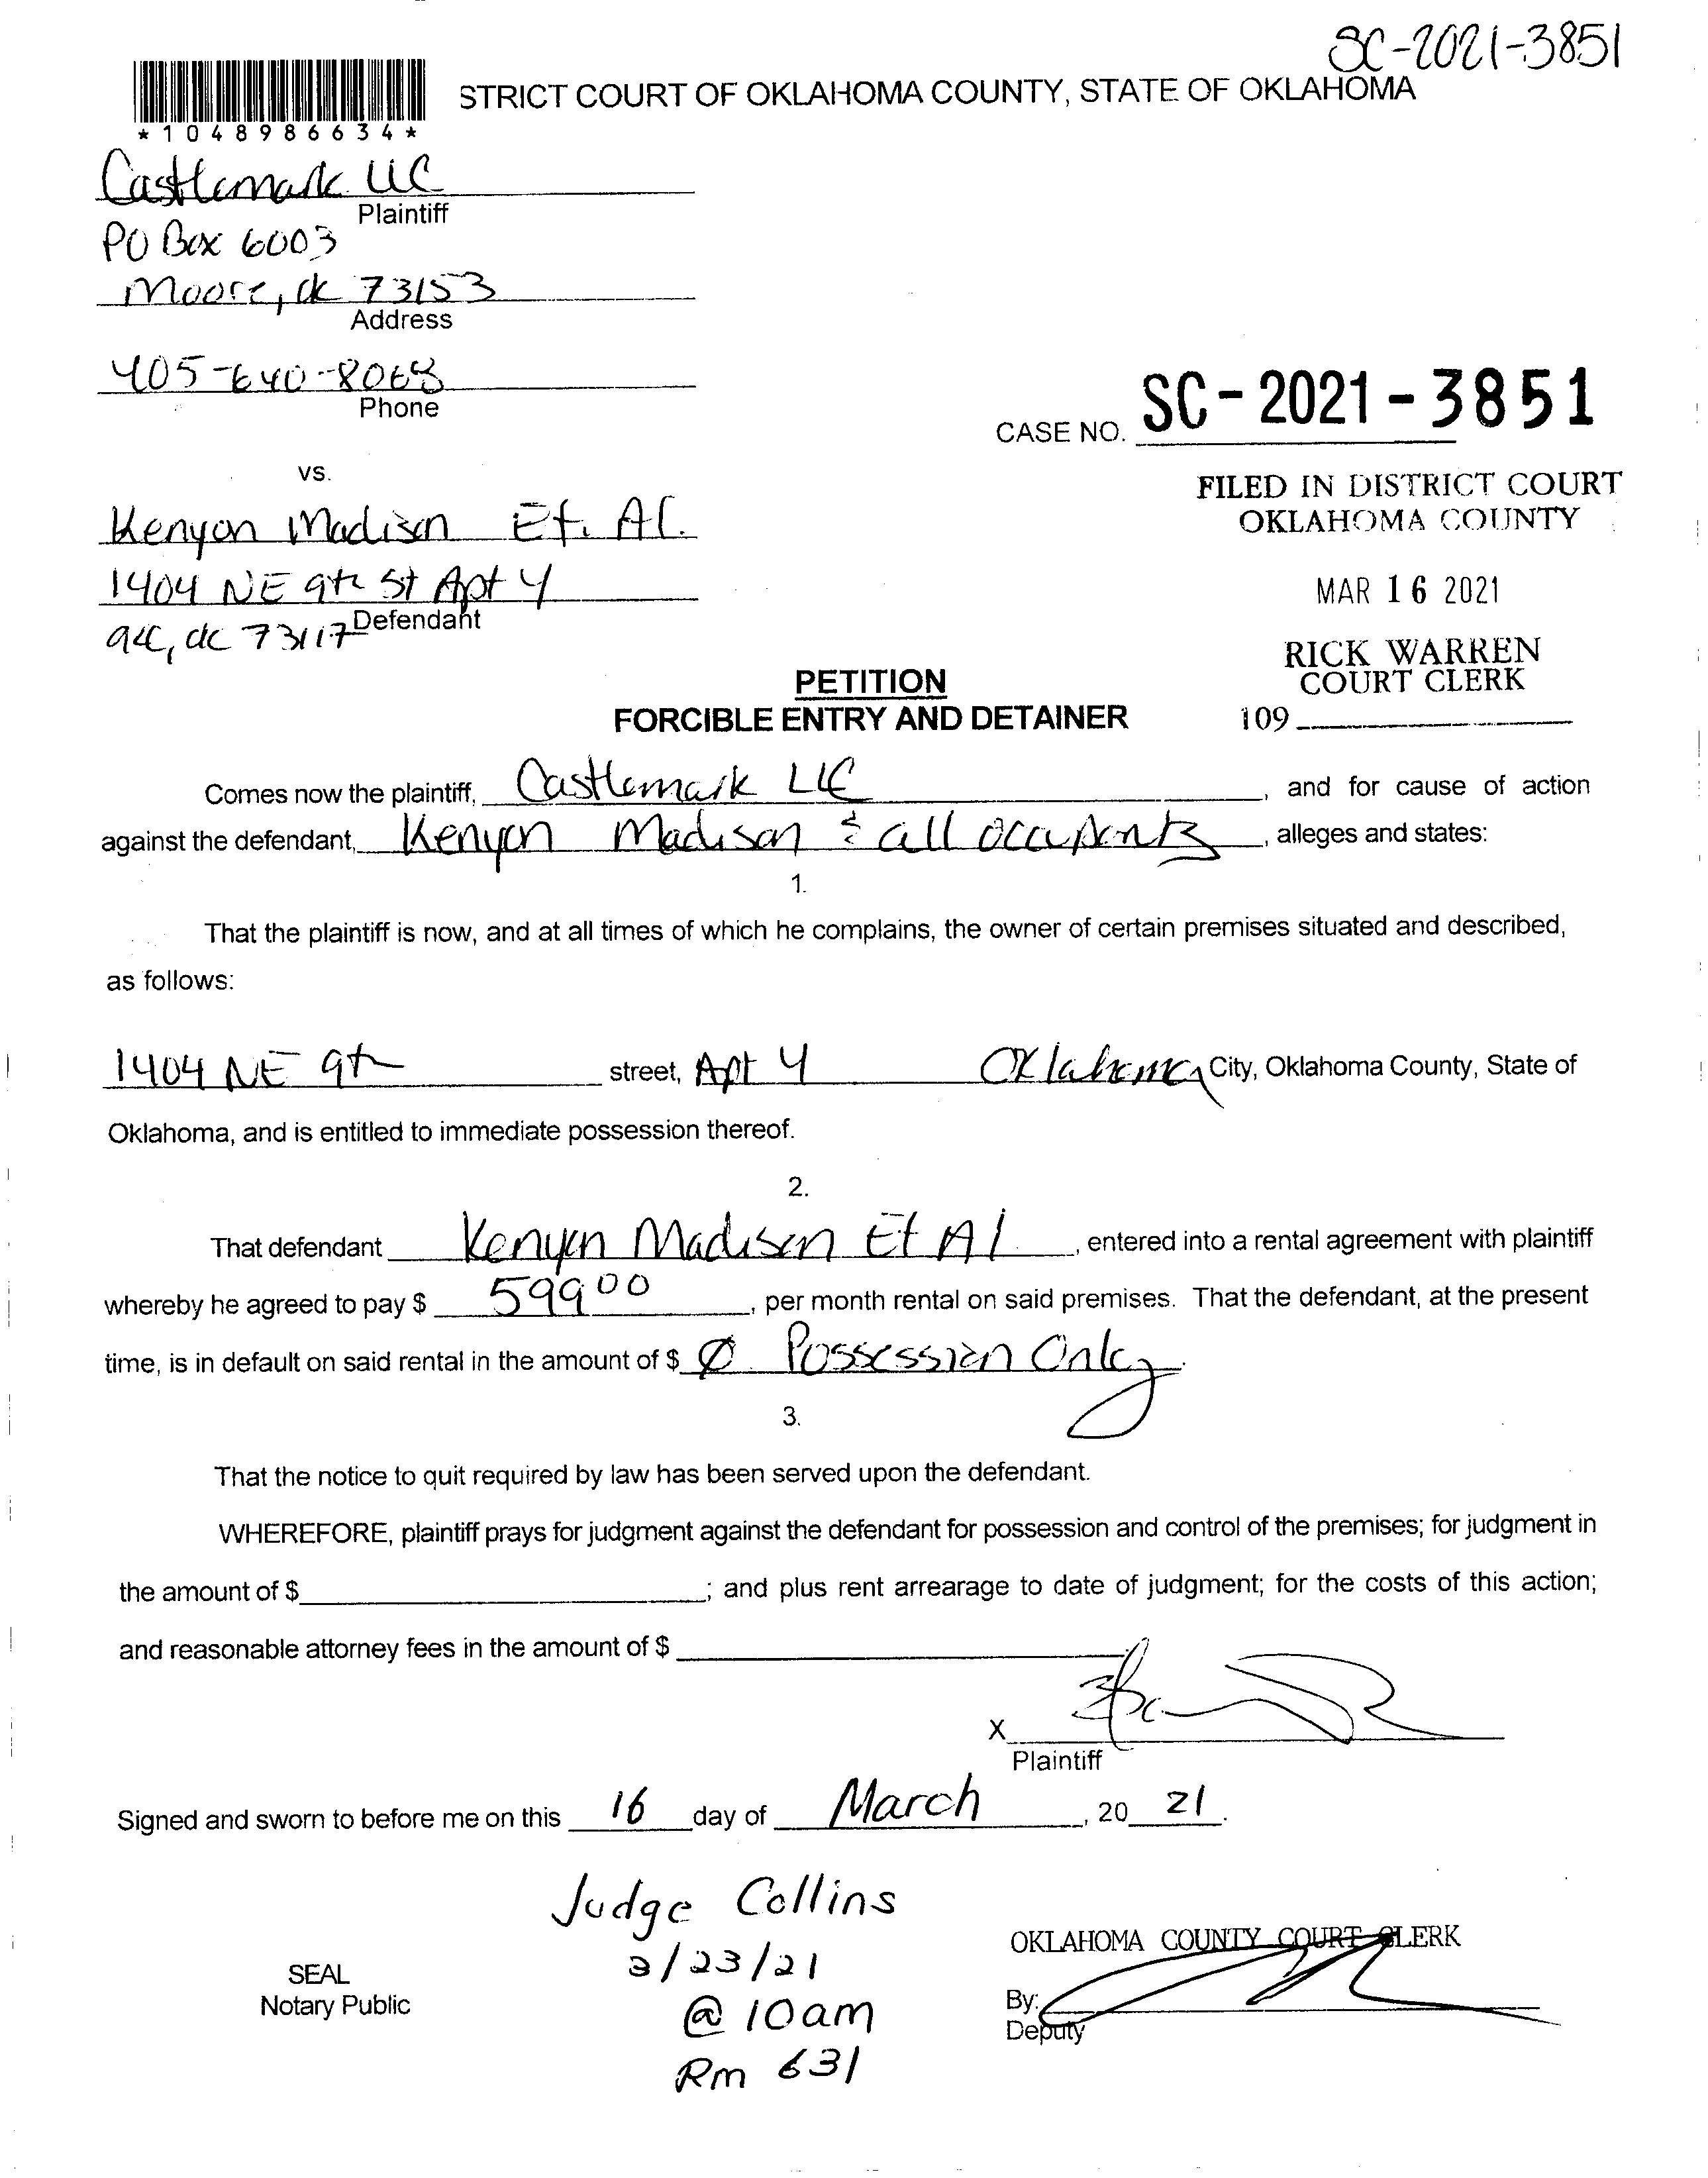 SC-2021-3851
STRICT COURT OF OKLAHOMA COUNTY, STATE OF OKLAHOMA
*1048986634*
Castlemark LLC
Plaintiff
PO Box 6003
Moore, ok 73153
Address
405-640-8068
Phone
CASE NO. SC-2021-3851
vs.
FILED IN DISTRICT COURT
OKLAHOMA COUNTY
Kenyon Madison Et. Al.
1404 NE 9th St Apt 4
Defendant
MAR 16 2021
OKC, ok 73117
RICK WARREN
COURT CLERK
109
PETITION
FORCIBLE ENTRY AND DETAINER
Comes now the plaintiff, Castlemark LLC, and for cause of action
against the defendant, Kenyon Madison & all occupants, alleges and states:
1.
That the plaintiff is now, and at all times of which he complains, the owner of certain premises situated and described,
as follows:
1404 NE 9th street, Apt 4 Oklahoma City, Oklahoma County, State of
Oklahoma, and is entitled to immediate possession thereof.
2.
That defendant Kenyon Madison Et Al, entered into a rental agreement with plaintiff
whereby he agreed to pay $ 599 00, per month rental on said premises. That the defendant, at the present
time, is in default on said rental in the amount of $ Ø Possession Only.
3.
That the notice to quit required by law has been served upon the defendant.
WHEREFORE, plaintiff prays for judgment against the defendant for possession and control of the premises; for judgment in
the amount of $ ; and plus rent arrearage to date of judgment; for the costs of this action;
and reasonable attorney fees in the amount of $
X
Plaintiff
Signed and sworn to before me on this 16 day of March, 20 21.
Judge Collins
3/23/21
@ 10am
Rm 631
SEAL
Notary Public
OKLAHOMA COUNTY COURT CLERK
By:
Deputy